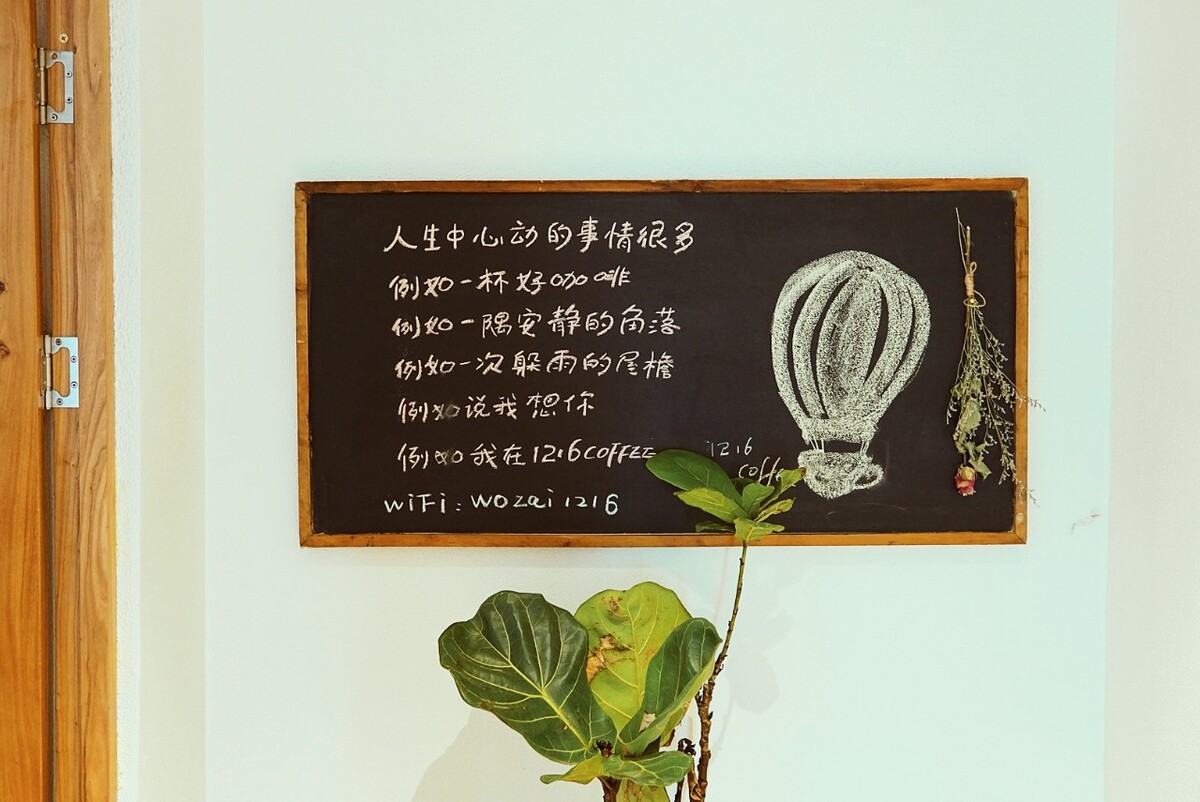 人生中心动的事情很多
例如一杯好咖啡
例如一隅安静的角落
例如一次躲雨的屋檐
例如说我想你
例如我在1216COFFEE
WiFi: wozai1216
1216
coffe